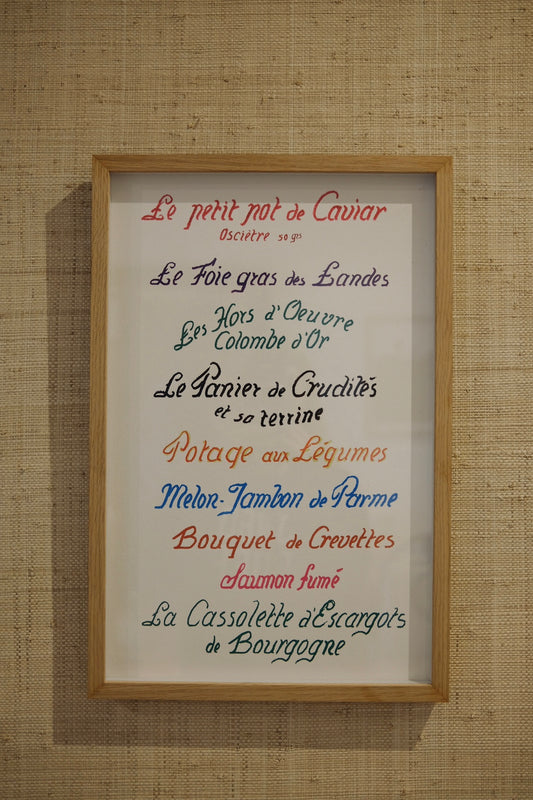 Le petit pot de Caviar
Osciètre 50 grs
Le Foie gras des Landes
Les Hors d'Oeuvre
Colombe d'Or
Le Panier de Crudités
et sa terrine
Potage aux Légumes
Melon-Jambon de Parme
Bouquet de Crevettes
Saumon fumé
La Cassolette d'Escargots
de Bourgogne